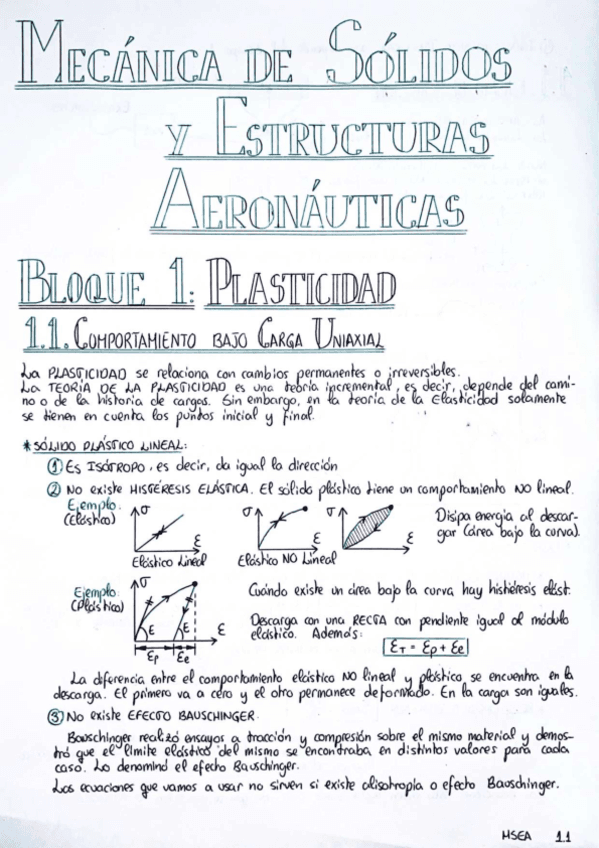 MECÁNICA DE SÓLIDOS
Y ESTRUCTURAS
AERONÁUTICAS
BLOQUE 1: PLASTICIDAD
1.1. COMPORTAMIENTO BAJO CARGA UNIAXIAL
La PLASTICIDAD se relaciona con cambios permanentes o irreversibles.
La TEORÍA DE LA PLASTICIDAD es una teoría incremental, es decir, depende del cami-
no o de la historia de cargas. Sin embargo, en la teoría de la Elasticidad solamente
se tienen en cuenta los puntos inicial y final.
* SÓLIDO PLÁSTICO LINEAL:
① Es ISÓTROPO, es decir, da igual la dirección
② No existe HISTÉRESIS ELÁSTICA. El sólido plástico tiene un comportamiento NO lineal.
Ejemplo: (Elástico)
σ ε σ ε σ ε
Elástico Lineal
Elástico NO Lineal
Disipa energía al descar-
gar (área bajo la curva).
Ejemplo: (Plástico)
σ E E ε
Ep Ee
Cuando existe un área bajo la curva hay histéresis elást.
Descarga con una RECTA con pendiente igual al módulo
elástico. Además:
ET = Ep + Ee
La diferencia entre el comportamiento elástico NO lineal y plástico se encuentra en la
descarga. El primero va a cero y el otro permanece deformado. En la carga son iguales.
③ No existe EFECTO BAUSCHINGER.
Bauschinger realizó ensayos a tracción y compresión sobre el mismo material y demos-
tró que el límite elástico del mismo se encontraba en distintos valores para cada
caso. Lo denominó el efecto Bauschinger.
Las ecuaciones que vamos a usar no sirven si existe alisotropía o efecto Bauschinger.
MSEA 1.1